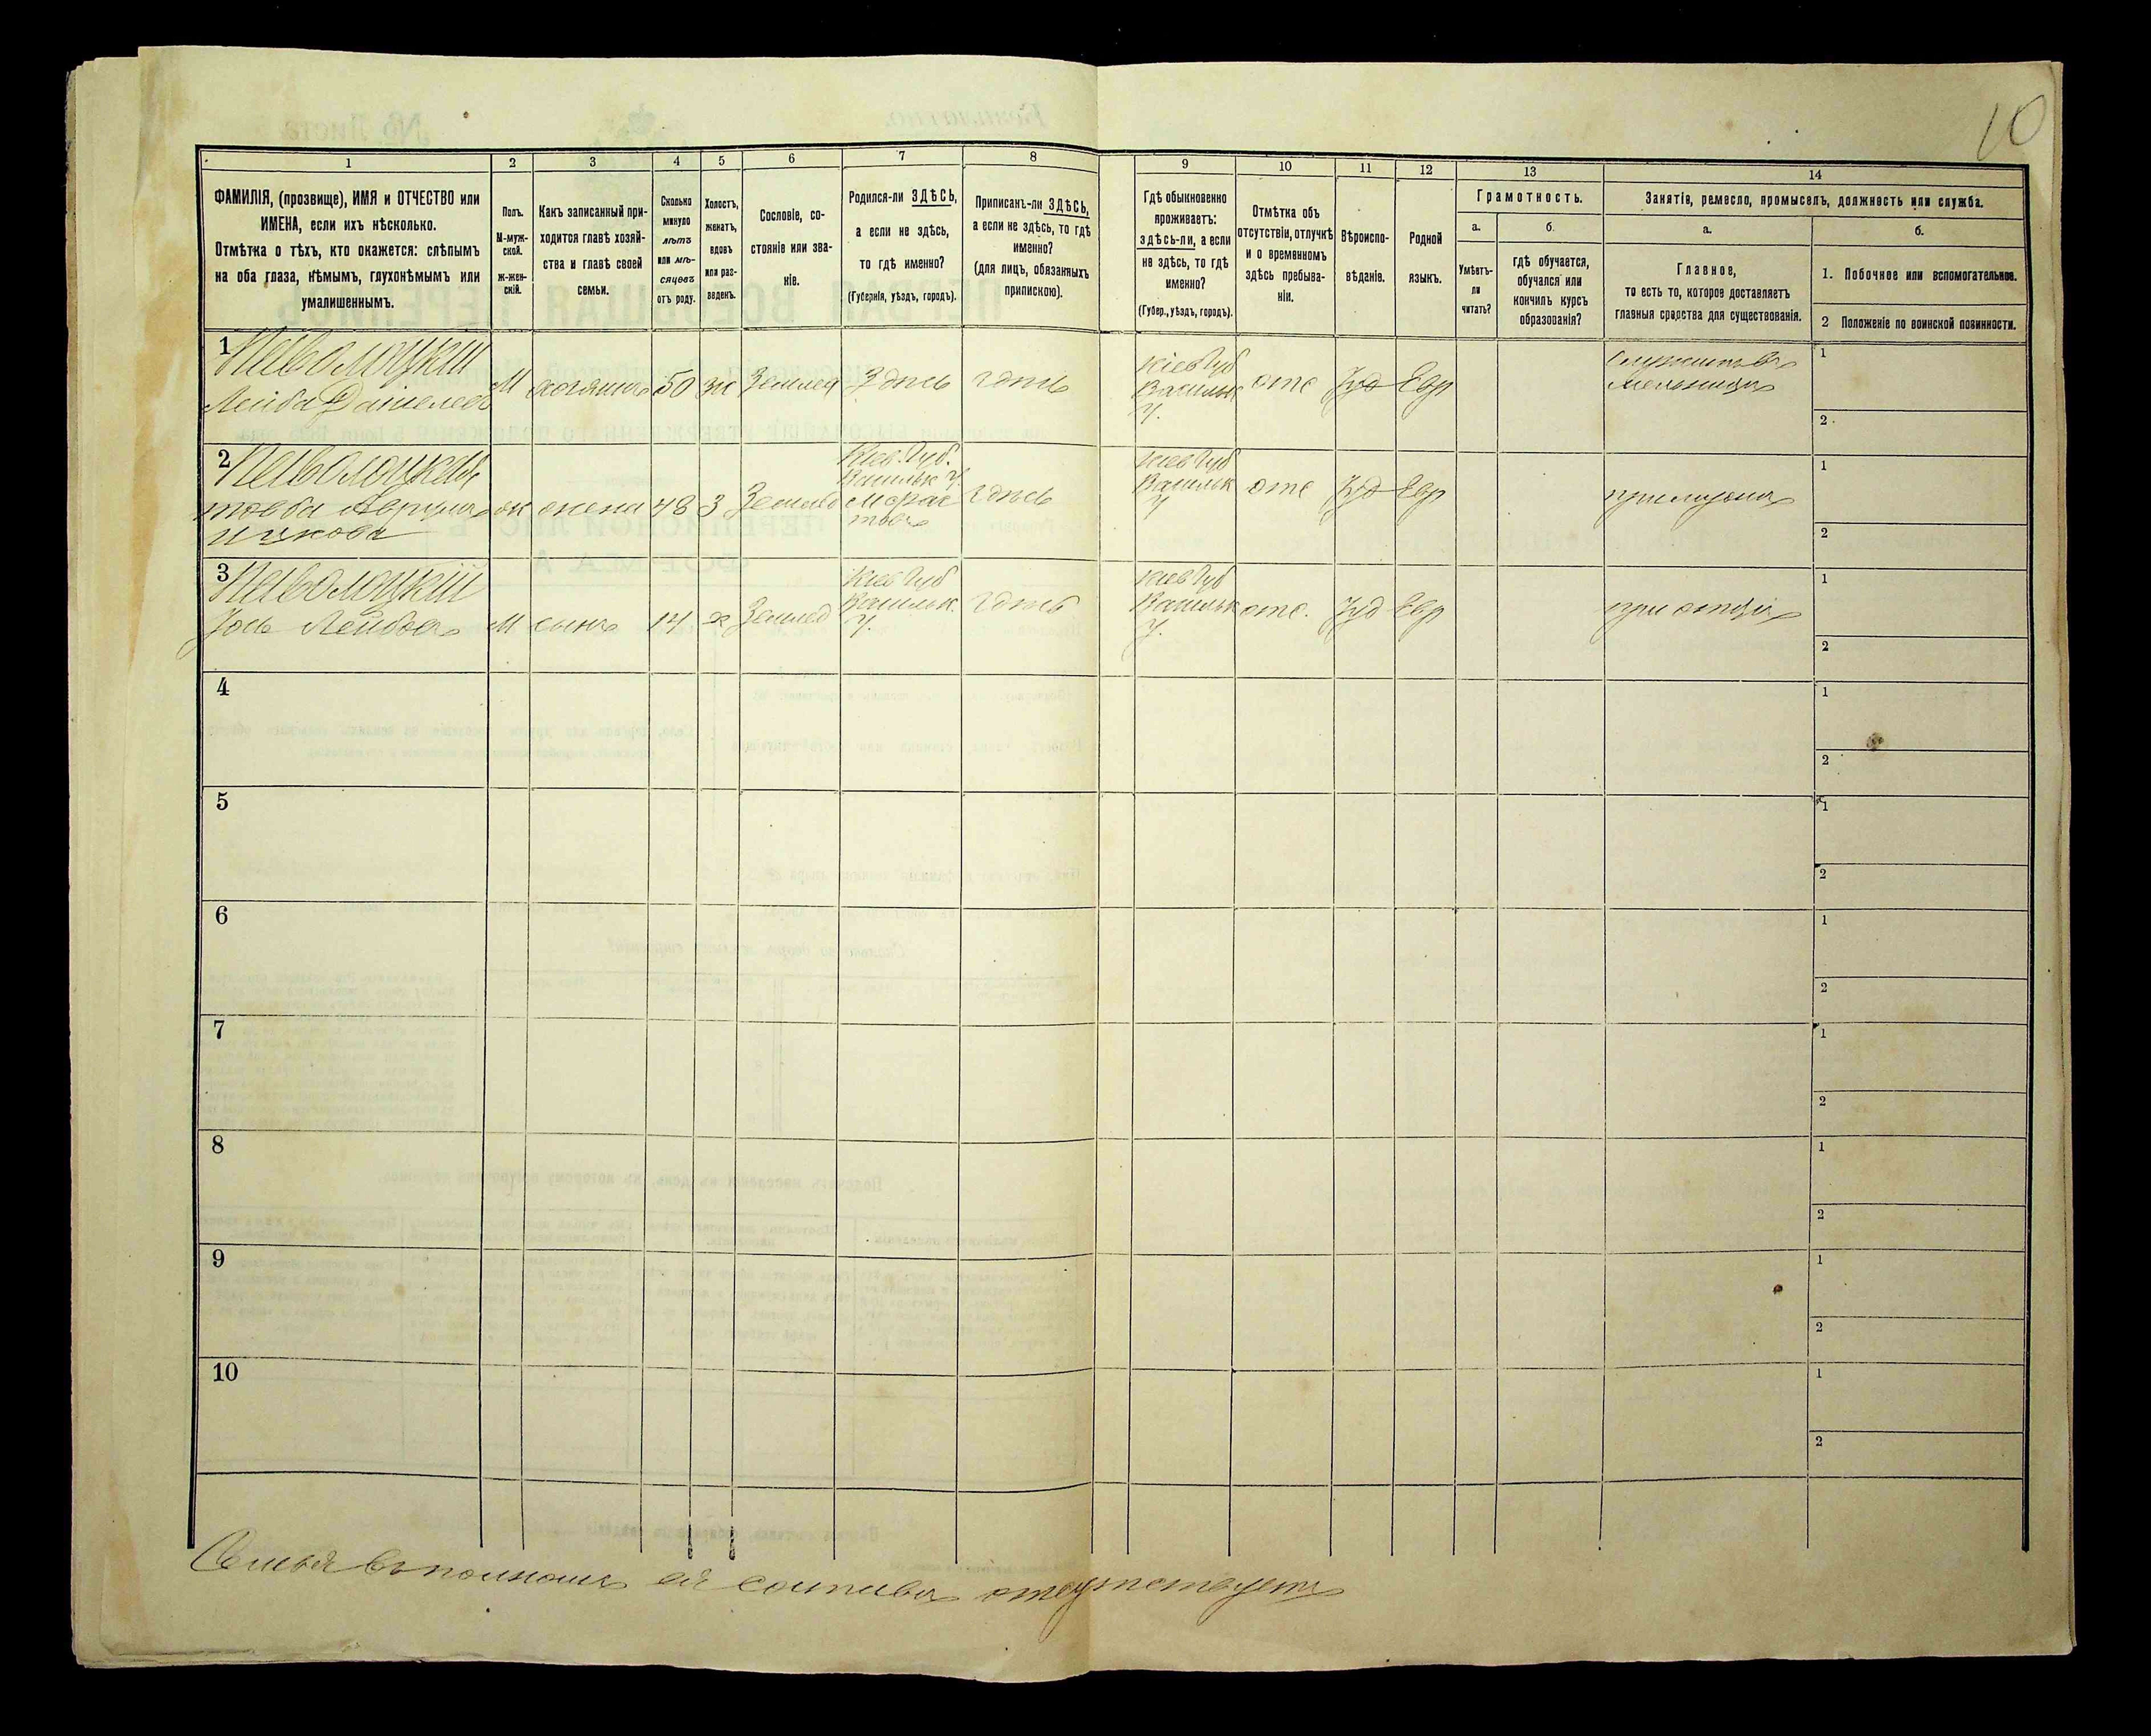 10
1 2 3 4 5 6 7 8 9 10 11 12 13 14
ФАМИЛІЯ, (прозвище), ИМЯ и ОТЧЕСТВО или
ИМЕНА, если ихъ нѣсколько.
Отмѣтка о тѣхъ, кто окажется: слѣпымъ
на оба глаза, нѣмымъ, глухонѣмымъ или
умалишеннымъ.
Полъ.
М-муж-
ской.
ж-жен-
скій.
Какъ записанный при-
ходится главѣ хозяй-
ства и главѣ своей
семьи.
Сколько
минуло
лѣтъ
или мѣ-
сяцевъ
отъ роду.
Холостъ,
женатъ,
вдовъ
или раз-
веденъ.
Сословіе, со-
стояніе или зва-
ніе.
Родился-ли ЗДѢСЬ,
а если не здѣсь,
то гдѣ именно?
(Губернія, уѣздъ, городъ).
Приписанъ-ли ЗДѢСЬ,
а если не здѣсь, то гдѣ
именно?
(для лицъ, обязанныхъ
припискою).
Гдѣ обыкновенно
проживаетъ:
здѣсь-ли, а если
не здѣсь, то гдѣ
именно?
(Губер., уѣздъ, городъ).
Отмѣтка объ
отсутствіи, отлучкѣ
и о временномъ
здѣсь пребыва-
ніи.
Вѣроиспо-
вѣданіе.
Родной
языкъ.
Грамотность.
а.
Умѣетъ-
ли
читать?
б.
гдѣ обучается,
обучался или
кончилъ курсъ
образованія?
Занятіе, ремесло, промыселъ, должность или служба.
а.
Главное,
то есть то, которое доставляетъ
главныя средства для существованія.
б.
1. Побочное или вспомогательное.
2 Положеніе по воинской повинности.
1 Паволоцкій
Лейба Даніелев
М хозяинъ 50 ж Землед Здѣсь здѣсь
Кіев Губ
Васильк
У.
отс Іуд Евр
мельницѣ
1
2
2
жена 48 з Землед
Кіев. Губ.
Васильк У.
здѣсь
Кіев Губ
Васильк
У
отс Іуд Евр
при мужѣ
1
2
3 Паволоцкій
Лейбов М сынъ 14 х Землед
Кіев Губ
Васильк.
У.
здѣсь
Кіев Губ
Васильк
У.
отс. Іуд Евр
при отцѣ
1
2
4
1
2
5
1
2
6
1
2
7
1
2
8
1
2
9
1
2
10
1
2
Семья въ полномъ ея составѣ отсутствуетъ